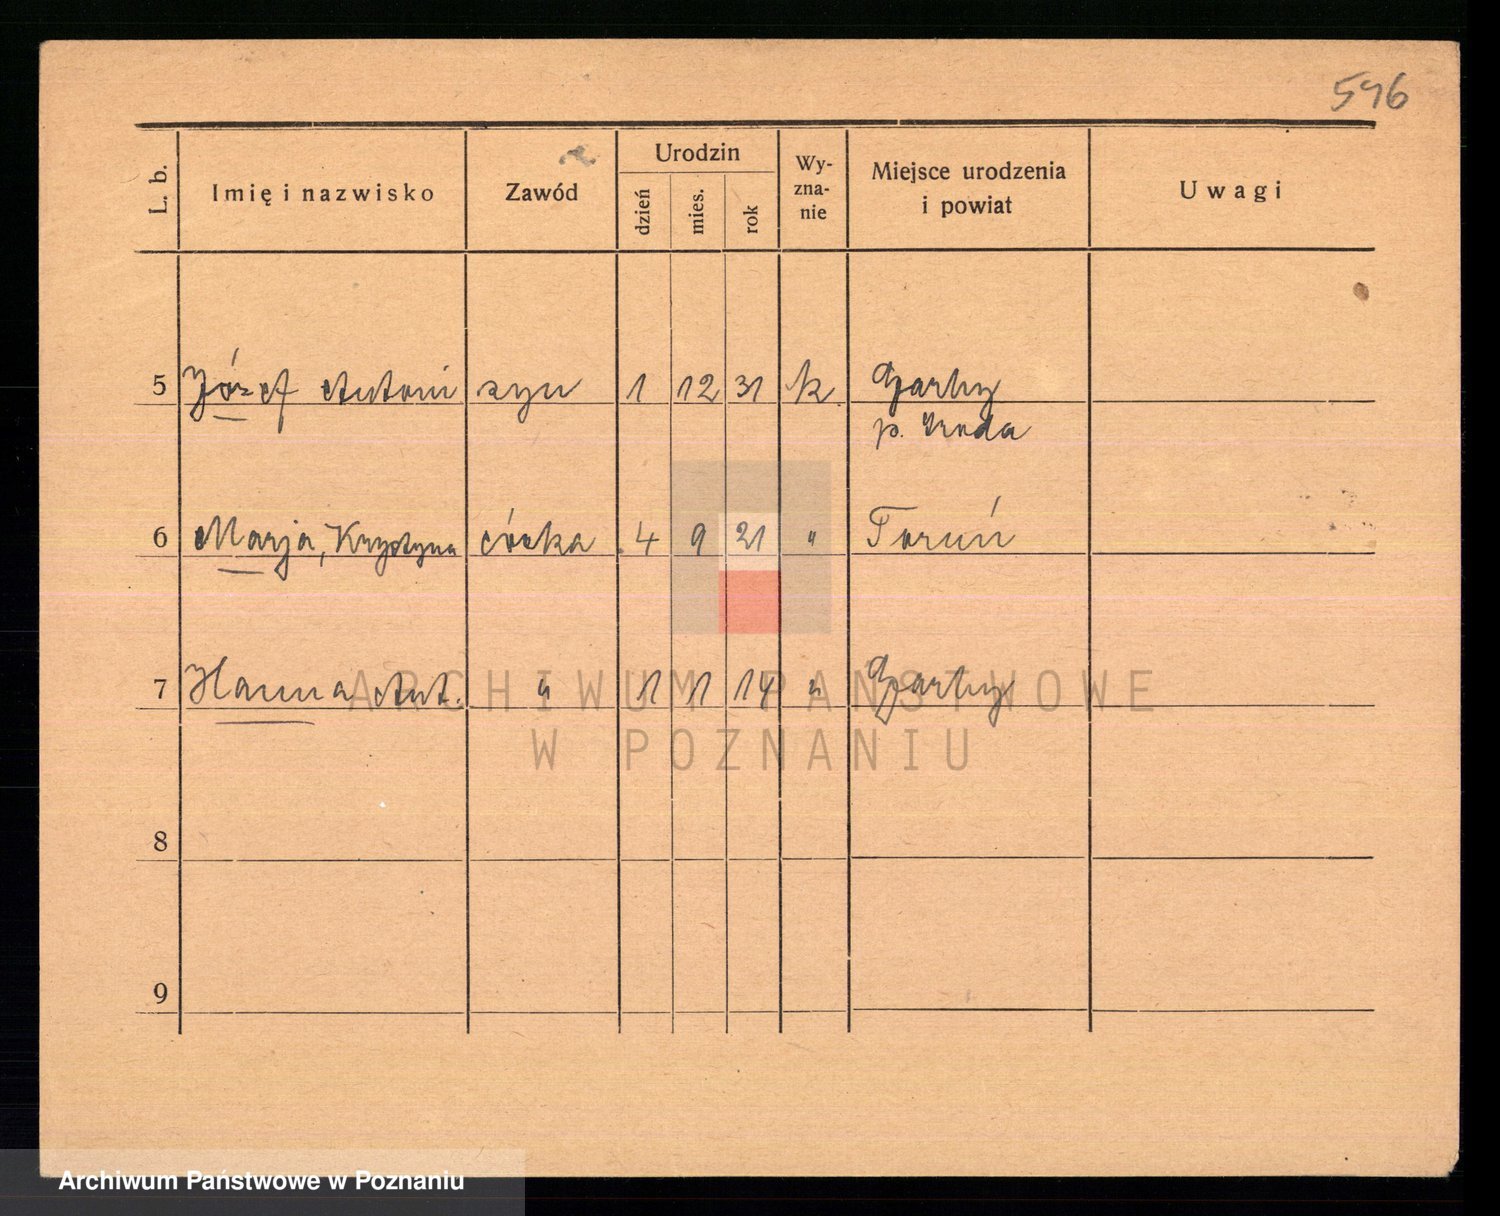 596
L. b.
Imię i nazwisko
Zawód
Urodzin
dzień
mies.
rok
Wy-
zna-
nie
Miejsce urodzenia
i powiat
Uwagi
5 Józef Antoni syn 1 12 31 k. Garby
p. Środa
6 Marja, Krystyna córka 4 9 21 " Toruń
7 Hanna Ant. " 1 1 14 " Garby
ARCHIWUM PAŃSTWOWE
W POZNANIU
8
9
Archiwum Państwowe w Poznaniu